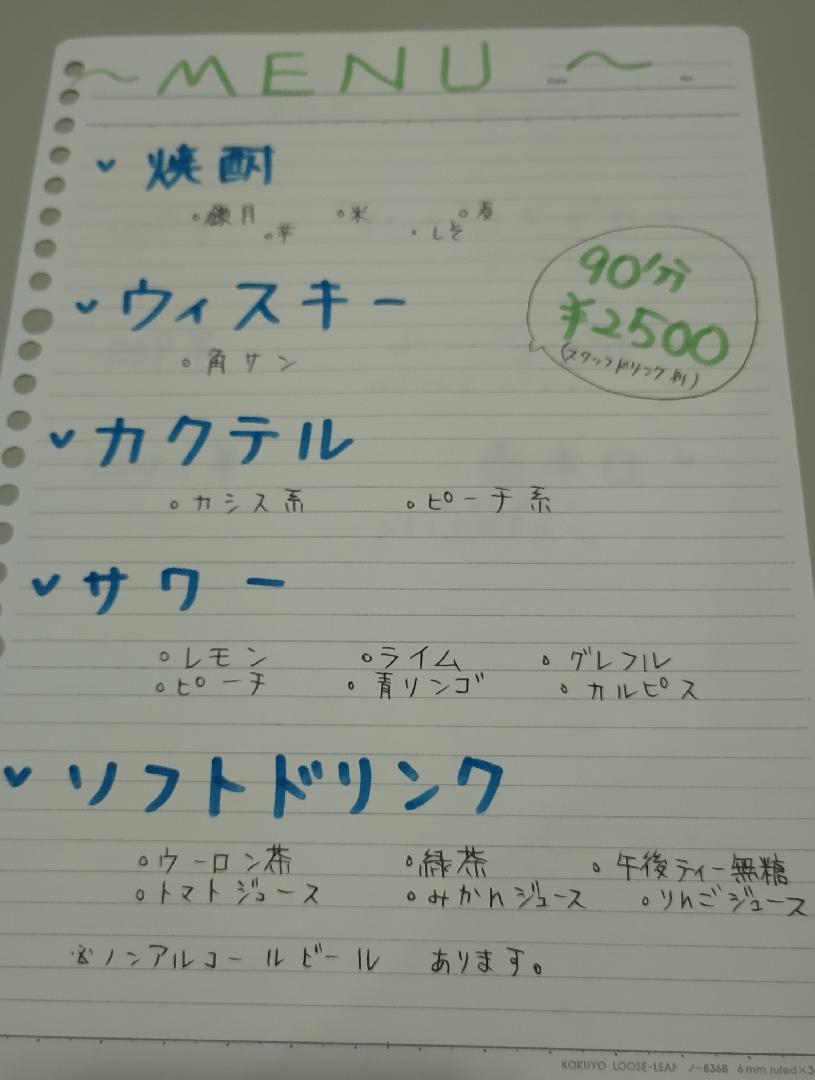 ~MENU~
焼酎
○鏡月 ○米 ○麦
○芋 ○しそ
90分
¥2500
(スタッフドリンク別)
ウィスキー
○角サン
カクテル
○カシス系 ○ピーチ系
サワー
○レモン ○ライム ○グレフル
○ピーチ ○青リンゴ ○カルピス
ソフトドリンク
○ウーロン茶 ○緑茶 ○午後ティー無糖
○トマトジュース ○みかんジュース ○りんごジュース
※ノンアルコールビール あります。
KOKUYO LOOSE-LEAF ノ-836B 6mm ruled×3